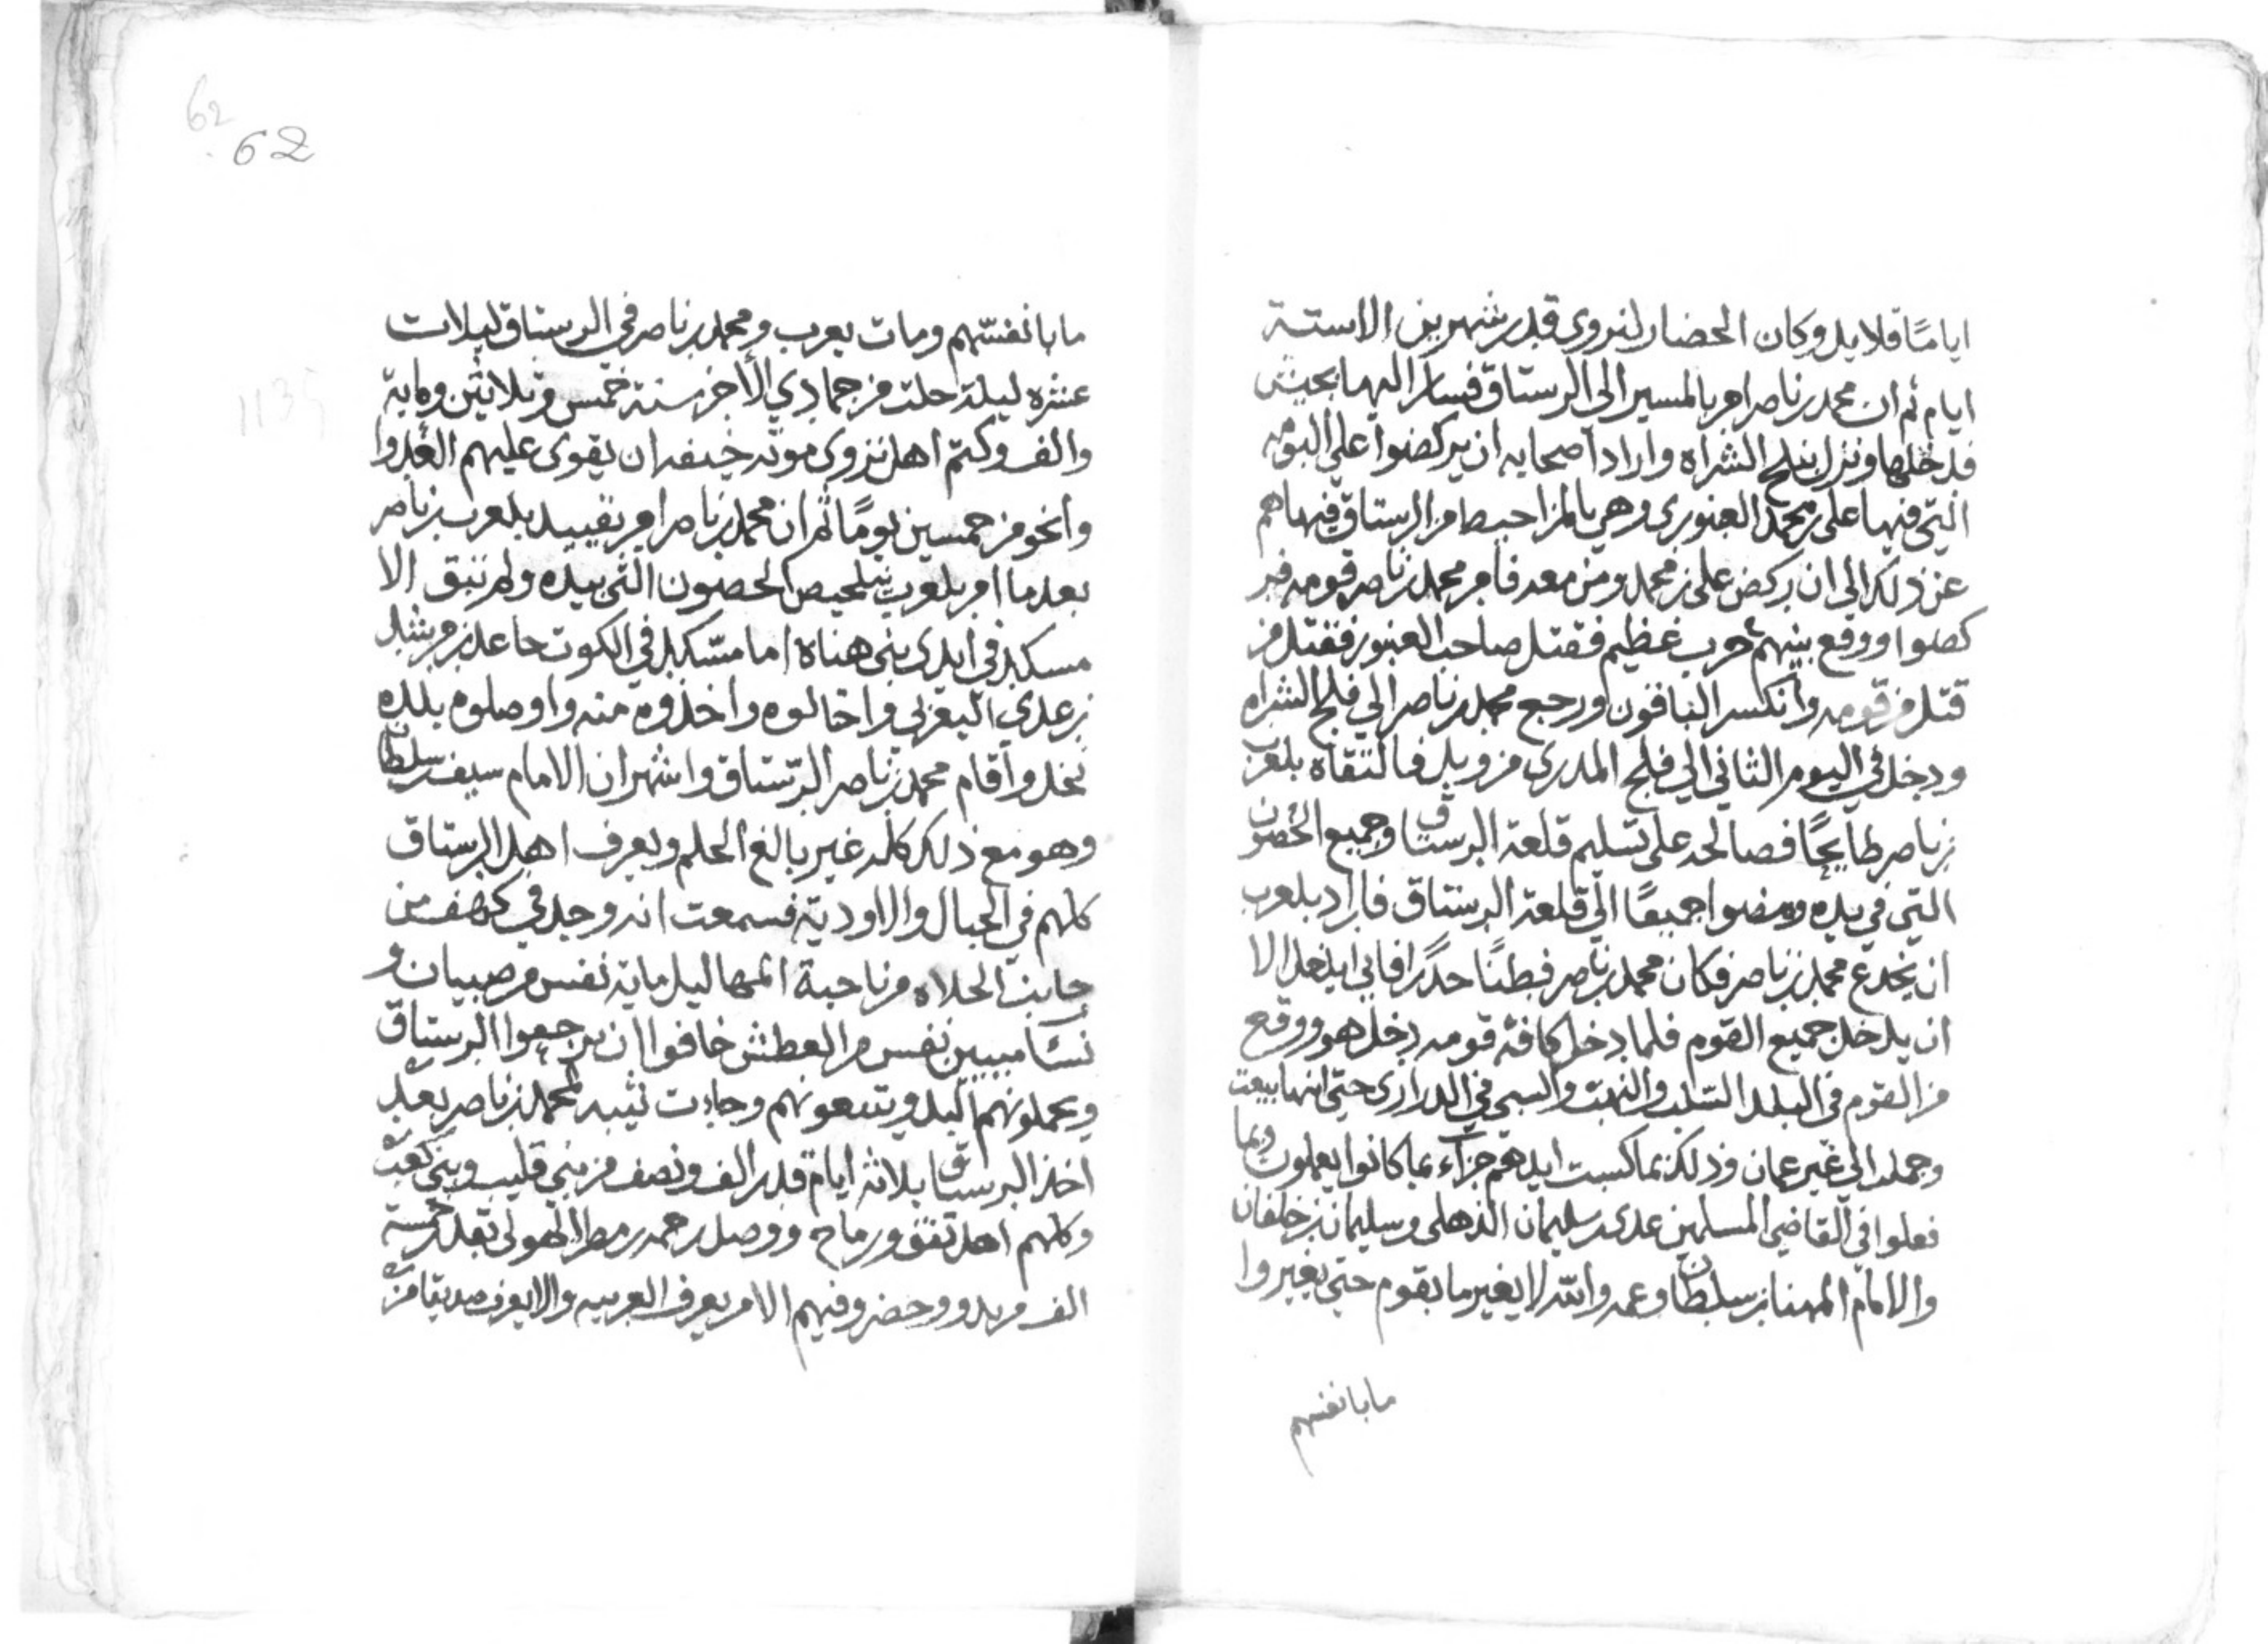 اياما قلايل وكان الحضار لنزوى قدر شهرين الا ستة
ايام ثم ان محمد بن ناصر امر بالمسير الى الرستاق فسار اليها بجيش
فدخلها ونزل بفلج الشراه واراد اصحابه ان يركضوا على البومه
التي فيها علي بن محمد العنبوري وهي بالمزاحيط من الرستاق فنهاهم
عن ذلك الى ان ركض علي بن محمد ومن معه فامر محمد بن ناصر قومه فر
كضوا ووقع بينهم حرب عظيم فقتل صاحب العنبور فقتل من
قتل من قومه وانكسر الباقون ورجع محمد بن ناصر الى فلج الشراه
ودخل في اليوم الثاني الى فلج المدري من وبل فالتقاه بلعرب
بن ناصر طايحا فصالحه على تسليم قلعة الرستاق وجميع الحصون
التي في يده ومضوا جميعا الى قلعة الرستاق فاراد بلعرب
ان يخدع محمد بن ناصر فكان محمد بن ناصر فطنا حذرا فابى الا
ان يدخل جميع القوم فلما دخل كافة قومه دخل هو ووقع
من القوم في البلد السلب والنهب والسبي في الدراري حتى انها بيعت
وحملت الى غير عمان وذلك بما كسبت ايديهم جزاء بما كانوا يعملون وبما
فعلوا في القاضي المسلمين عدي بن سليمان الذهلي وسليمان بن خلفان
والامام المهنا بن سلطان وعمه والله لا يغير ما بقوم حتى يغيروا
ما بانفسهم
62
62
1135
ما بانفسهم ومات يعرب ومحمد بن ناصر في الرستاق لثلاث
عشره ليلة خلت من جمادي الأخر سنة خمس وثلاثين وماية
والف وكتم اهل نزوى موته خيفه ان يقوى عليهم العدوا
وانحو من خمسين يوما ثم ان محمد بن ناصر امر بقييد بلعرب بن ناصر
بعد ما امر بلعرب بتلحيص الحصون التي بيده ولم تبق الا
مسكد في ايدي بني هناة اما مسكد في الكوت حاعد بن مرشد
بن عدي اليعربي فاخالوه واخذوه منه واوصلوه بلده
نخل واقام محمد بن ناصر الرستاق واشهر ان الامام سيف بن سلطان
وهو مع ذلك كله غير بالغ الحلم ويعرف اهل الرستاق
كلهم في الجبال والاودية فسمعت انه وجد في كهف من
جانب الحلاه من ناحية المهاليل ماية نفس من صبيان و
نساء ميبين نفس من العطش خافوا ان يرجعوا الرستاق
ويحملونهم البدو ويتبعونهم وجاءت نيبه لمحمد بن ناصر بعد
اخذ الرستاق بلاثة ايام قدر الف ونصف من بني قليب وبني كعب
وكلهم اهل تفق ورماح ووصل رحمه بن مطر الهولى بقدر خمسة
الف من بدو وحضر وفيهم الا من يعرف العربيه والا يعرف صديقا من